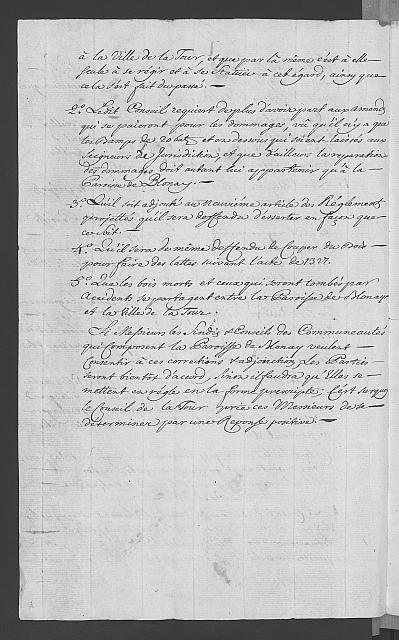 à la Ville de la Tour, et que par là même c'est à elle
seule à se régir et à se statuer à cet égard, ainsy que
cela s'est fait du passé. —
2.° Ledit Conseil requiert de plus d'avoir part aux amend
qui se paieront pour les dommages, vû qu'il n'y a que
les bamps de 20 batz et en dessous qui soient laissés aux
Seigneur de Jurisdiction, et que d'ailleurs la réparation
des dommages doit autant lui appartenir qu'à la
Paroisse de Blonay. —
3.° Qu'il soit adjouté au Neuvieme article des Réglement
projettés qu'il sera deffendu d'esserter en façon que
ce soit. —
4.° Qu'il sera de même deffendu de Couper du Bois —
pour faire des lattes suivant l'acte de 1327. —
5.° Que les bois morts et ceux qui seront tombés par
Accidents se partagent entre la Parroisse de Blonay
et la Ville de la Tour.
Si Messieurs les Sindic & Conseils des Communeautés
qui Composent la Parroisse de Blonay veulent —
Consentir à ces corrections & adjonction, les Parties
seront bientot d'accord, sinon il faudra qu'Elles se
mettent en règle en la forme prescripte; C'est surquoy
le Conseil de la Tour prie ces Messieurs de se —
determiner par une Reponse positive. —